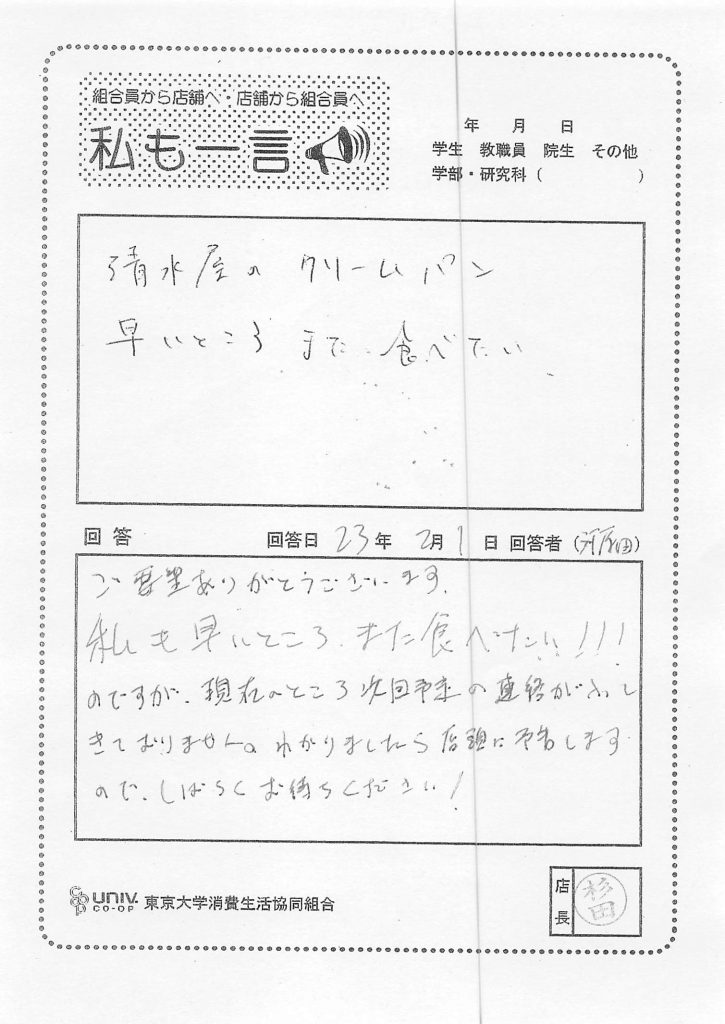 組合員から店舗へ・店舗から組合員へ
私も一言
年 月 日
学生 教職員 院生 その他
学部・研究科( )
清水屋の クリームパン
早いところ また 食べたい
回答 回答日 23年 2月1日 回答者( )
ご要望ありがとうございます。
私も早いところ、また食べたい!!!
のですが、現在のところ次回予定の連絡が
きておりません。わかりましたら店頭に予告します
ので、しばらくお待ちください!
UNIV.
CO-OP
東京大学消費生活協同組合
店長
杉田